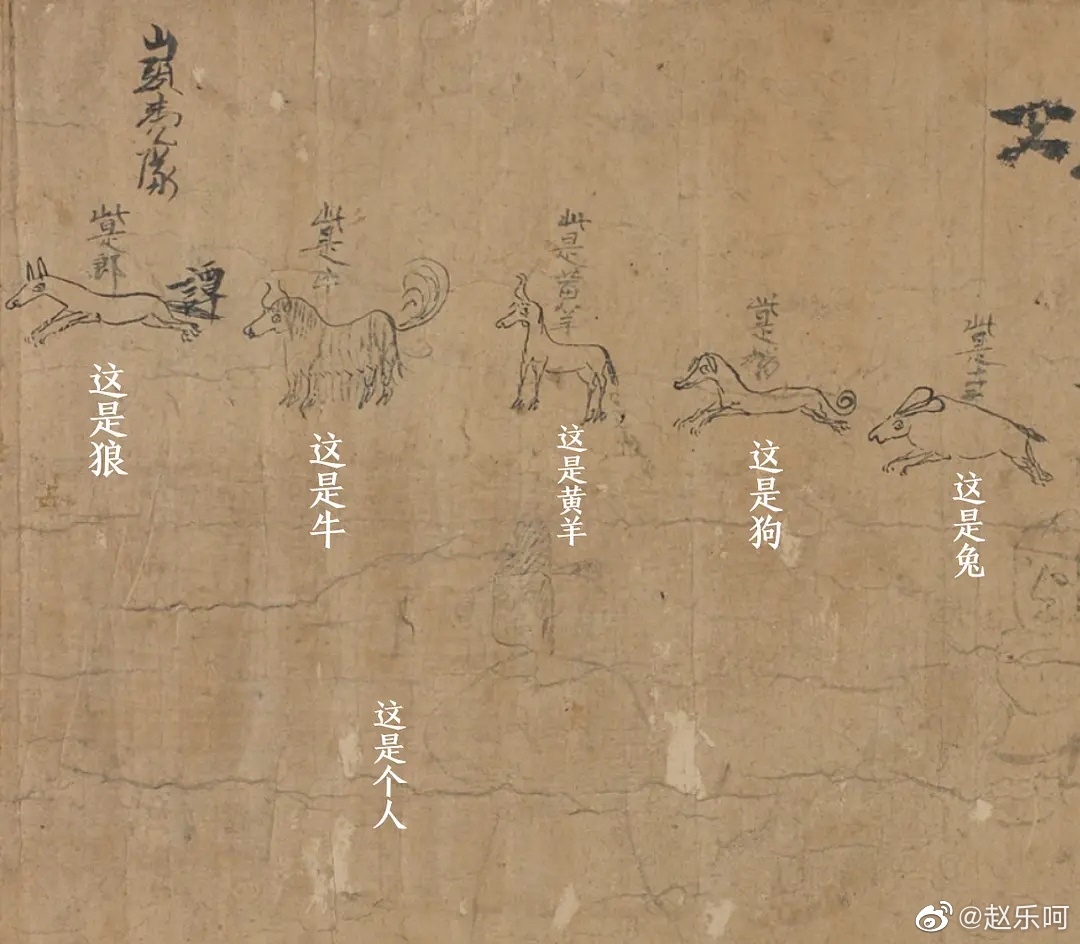 山頭馬隊
此是郎
譚
此是牛
此是黃羊
此是狗
此是
这是狼
这是牛
这是黄羊
这是狗
这是兔
这是个人
@赵乐呵